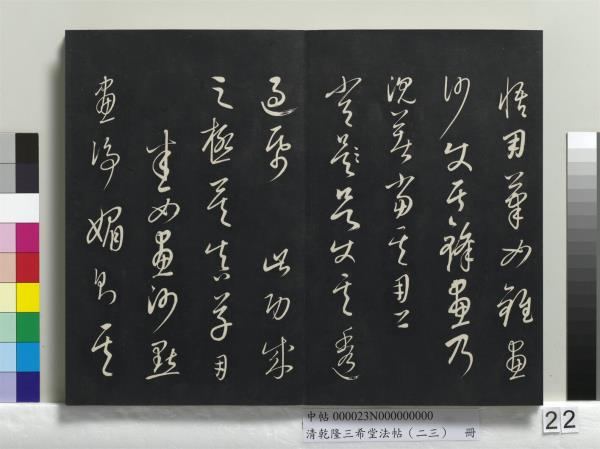 悟用筆如錐畫
沙使其鋒畫乃
沈著當其用
常使其透
過紙 此功成
之極矣真草用
畫沙點
畫淨媚則其
中帖 000023N000000000
清乾隆三希堂法帖(二三) 冊
22